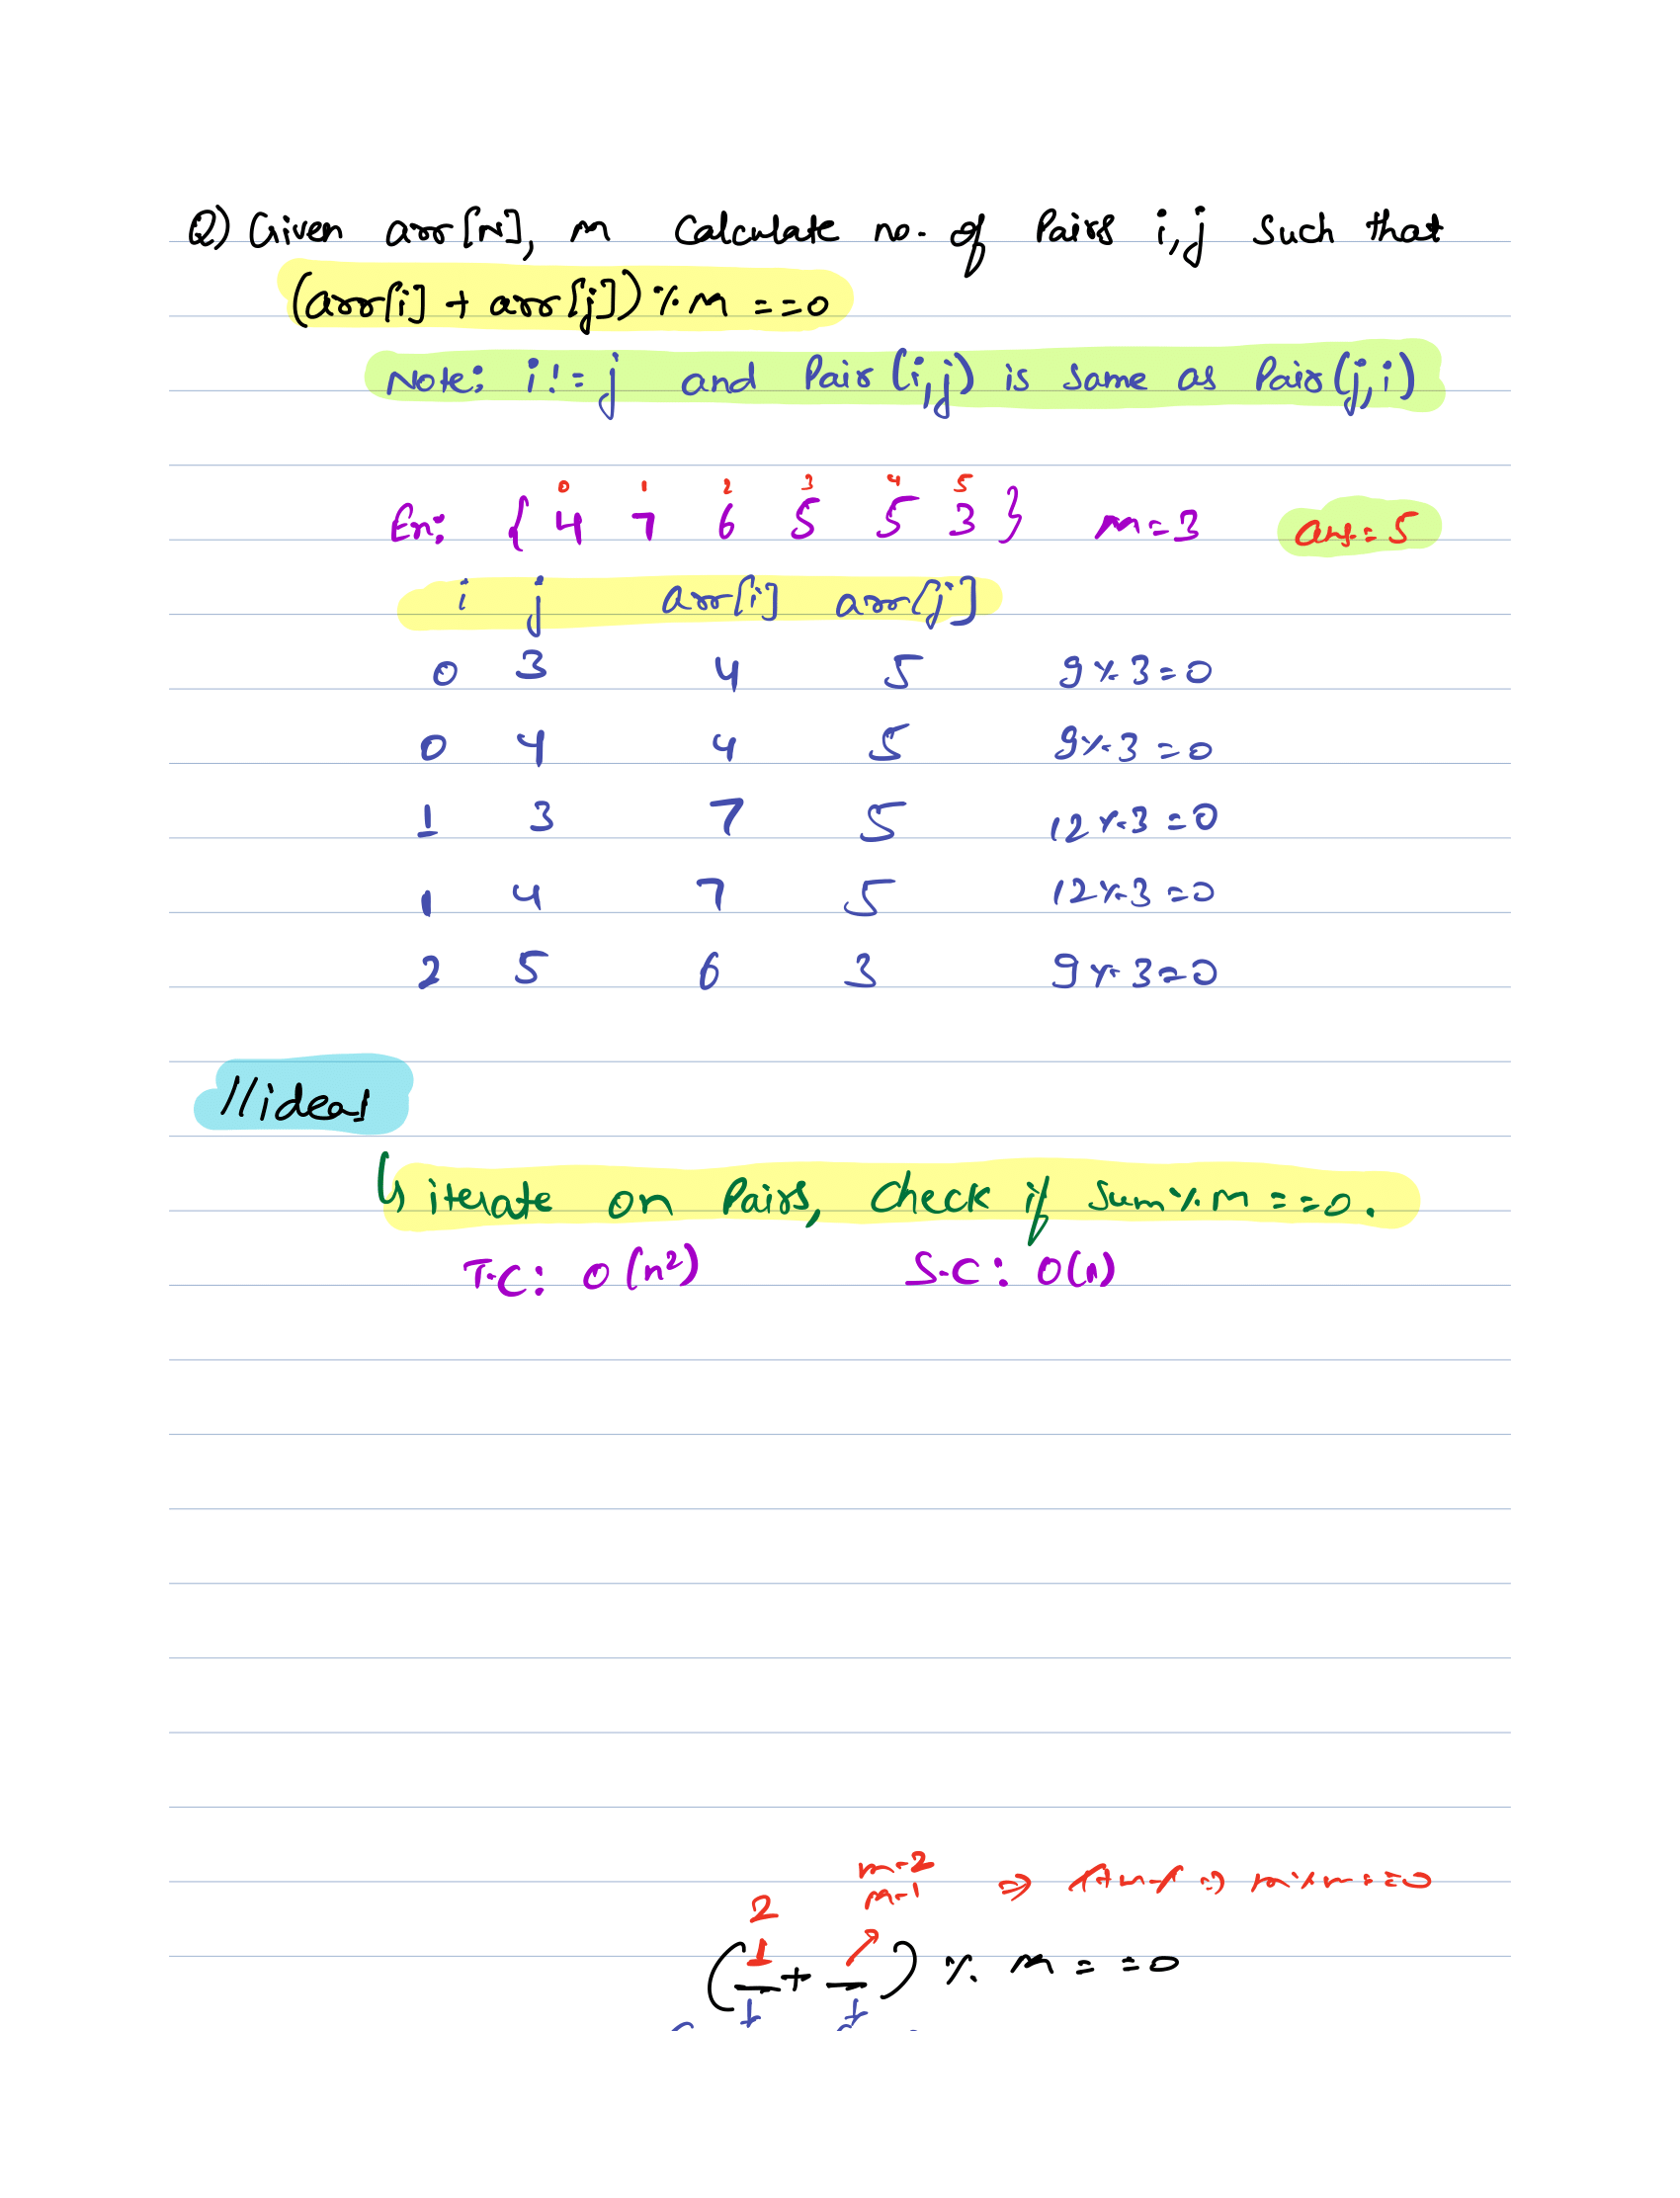 Q) Given arr[N], m Calculate no. of Pairs i,j such that
(arr[i] + arr[j]) % m == 0
Note: i != j and Pair(i,j) is same as Pair(j,i)
0 1 2 3 4 5
Ex: { 4 7 6 5 5 3 } m=3 ans=5
i j arr[i] arr[j]
0 3 4 5 9%3=0
0 4 4 5 9%3=0
1 3 7 5 12%3=0
1 4 7 5 12%3=0
2 5 6 3 9%3=0
//idea1
↳ iterate on Pairs, check if sum%m ==0.
T.C: O(n²) S.C: O(1)
m-2
2 m-1 => 1+m-1 => m%m==0
(1 + ) % m ==0